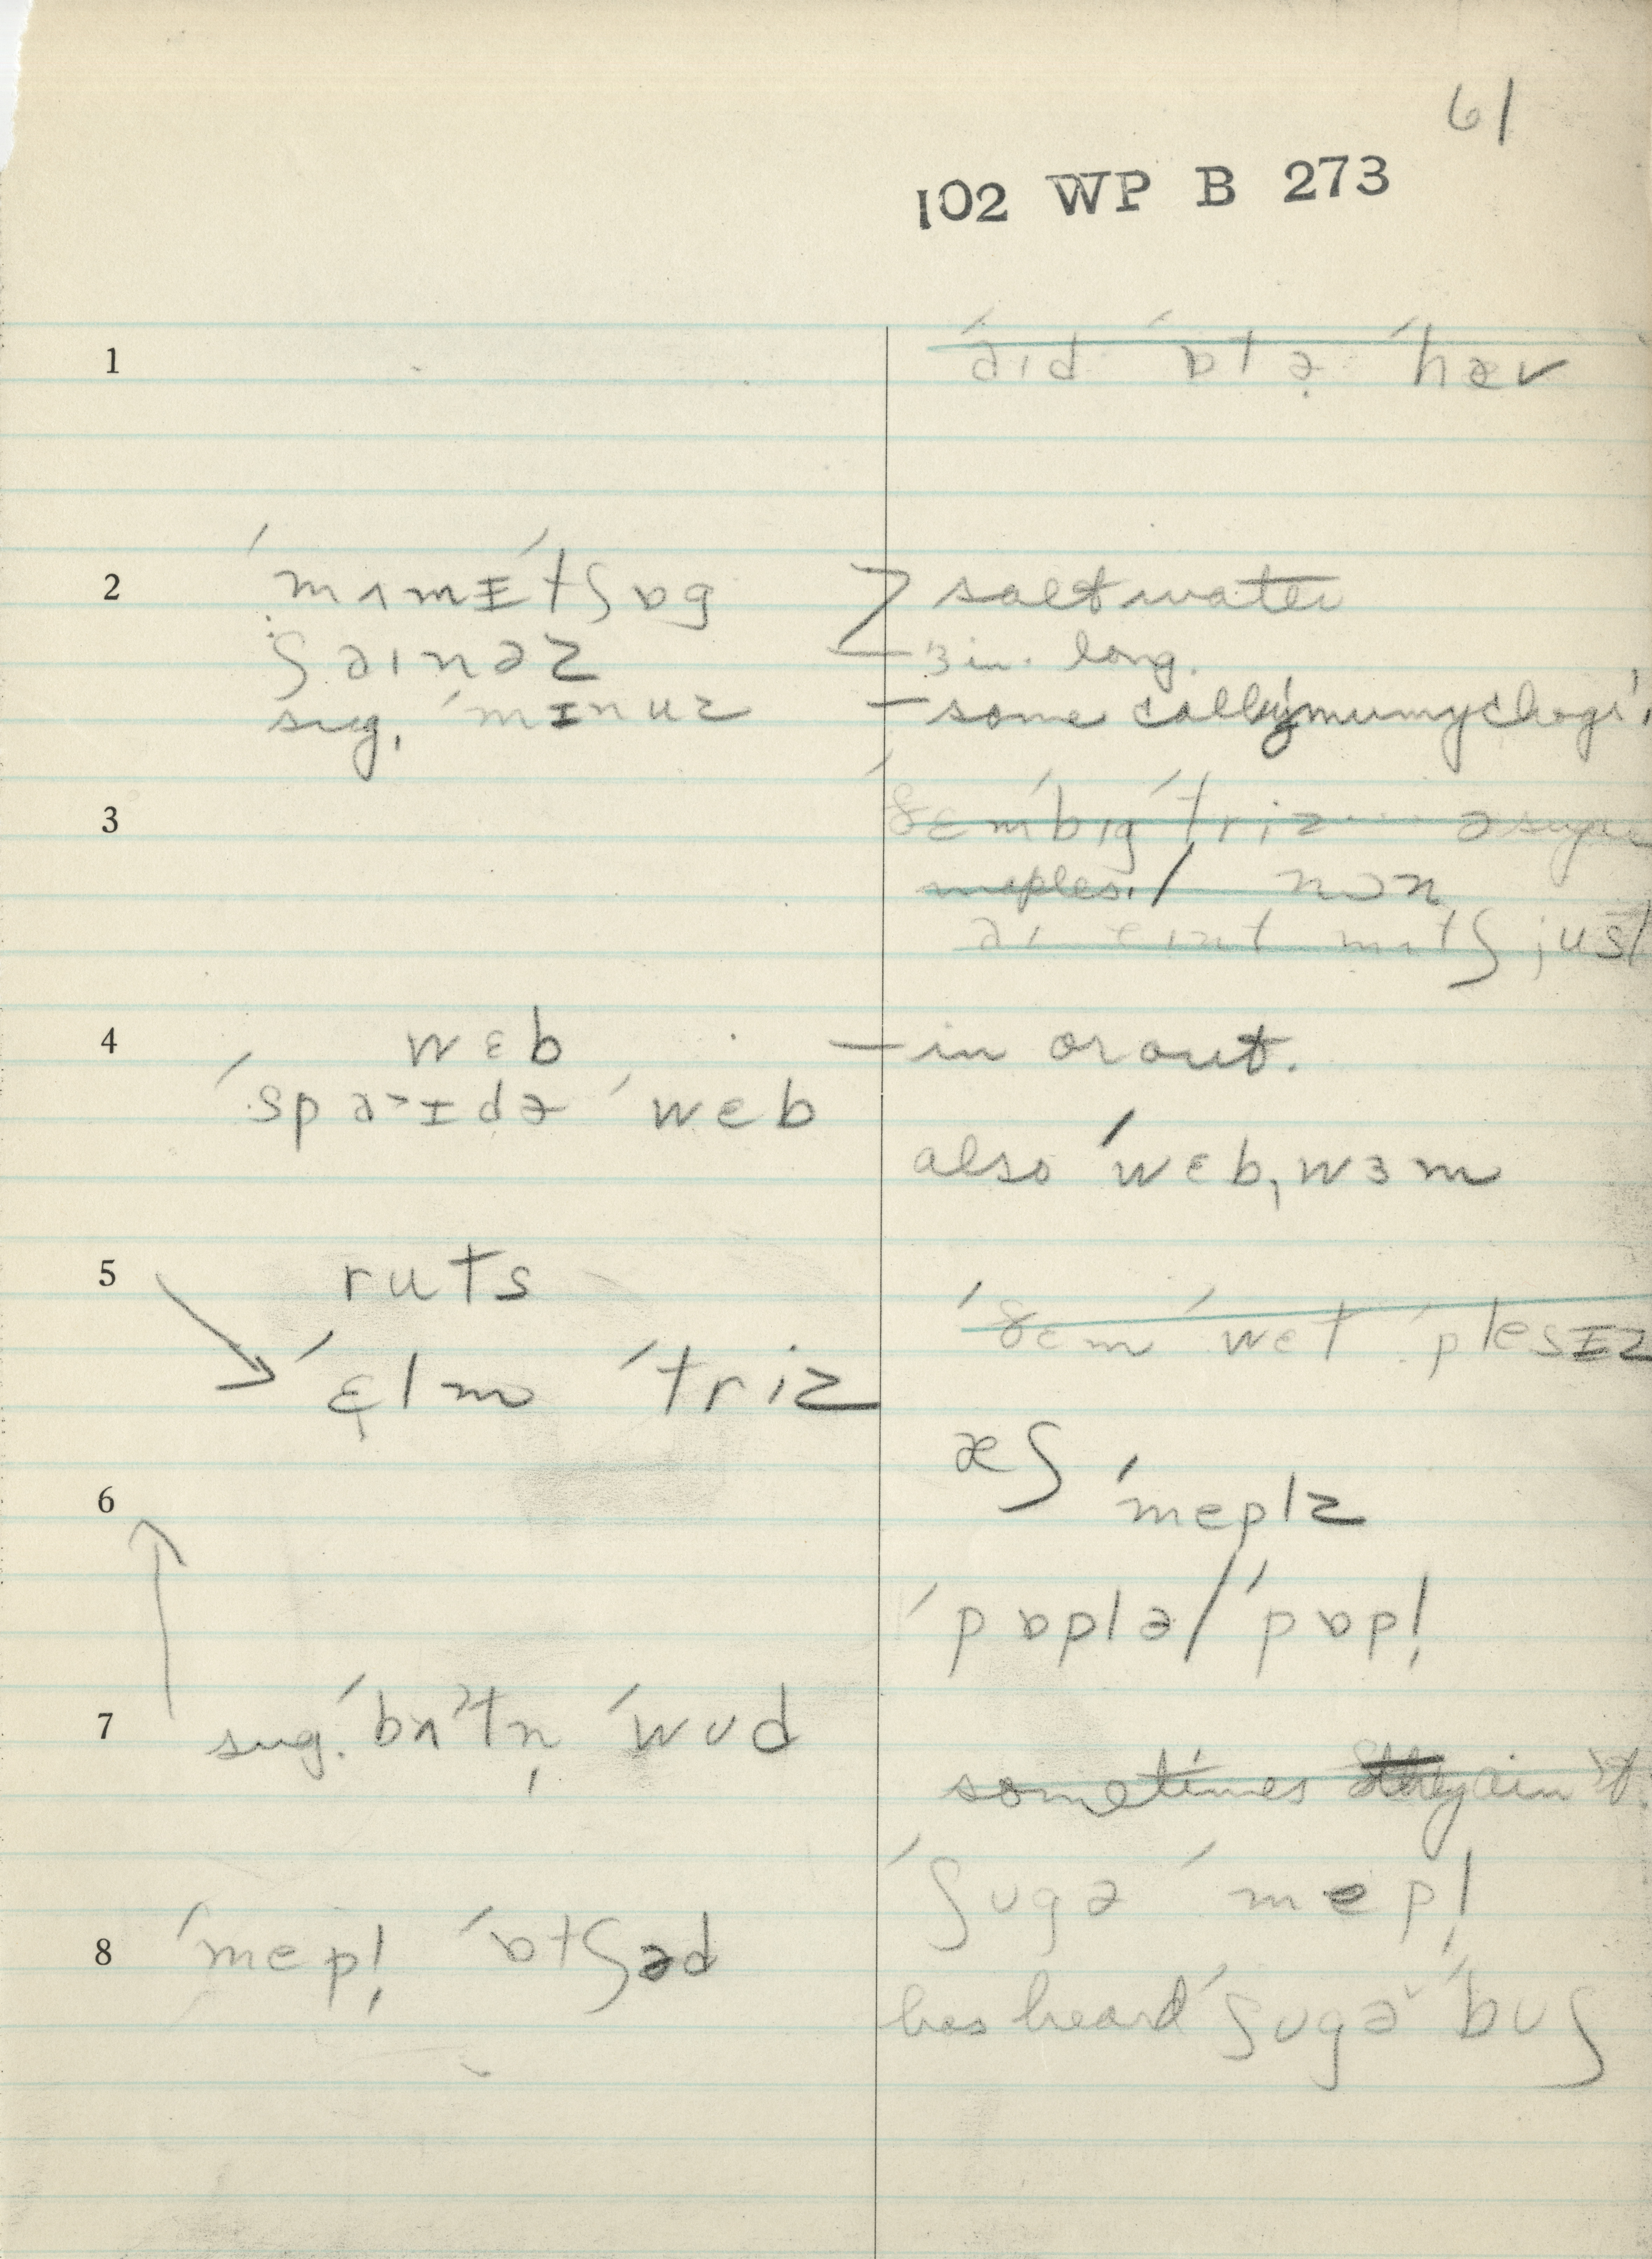 61
102 WP B 273
1
ˈaɪd ˈɒtə ˈhæv
2
ˈmʌmɪˈtʃɒg
ʃaɪnəz
sug. ˈmɪnuz
saltwater
3 in. long.
– some call
3
ˈðɛmˈbɪgˈtriz .... ə sugar
meples. / nɔn
just
4
wɛb
ˈspaˑɪdə ˈwɛb
– in or out.
also ˈwɛb, wɜm
5
ruts
ˈɛlm ˈtriz
ˈðɛm ˈwet ˈplesɪz
6
æʃ ˈmeplz
ˈpɒplə / ˈpɒpl̩
7
sug. ˈbʌˀtn̩ ˈwud
sometimes they ain't.
8
ˈmepl̩ ˈɒtʃəd
ˈʃugə ˈmepl̩
has heard ˈʃugə ˈbuʃ